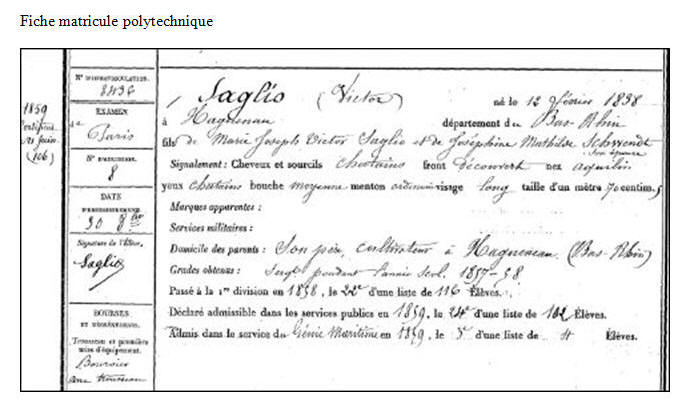 Fiche matricule polytechnique
N° D'IMMATRICULATION.
8436
EXAMEN
de
Paris
N° D'ADMISSION.
8
DATE
30 8bre
Signature de l'Élève.
Saglio
BOURSES
Trousseau et première
mise d'équipement.
Boursier
1859
(106)
Saglio (Victor) né le 12 février 1838
à Haguenau département du Bas-Rhin
fils de Marie Joseph Victor Saglio et de Joséphine Mathilde Schwendt
son épouse
Signalement : Cheveux et sourcils chatains front découvert nez aquilin
yeux chatains bouche moyenne menton ordinaire visage long taille d'un mètre 70 centim.
Marques apparentes :
Services militaires :
Domicile des parents : Son père, cultivateur à Haguenau (Bas-Rhin)
Grades obtenus : Sergt pendant l'année scol. 1857-58
Passé à la 1re division en 1858, le 22e d'une liste de 116 Élèves.
Déclaré admissible dans les services publics en 1859, le 24e d'une liste de 102 Élèves.
Admis dans le service du Génie Maritime en 1859, le 3e d'une liste de 4 Élèves.